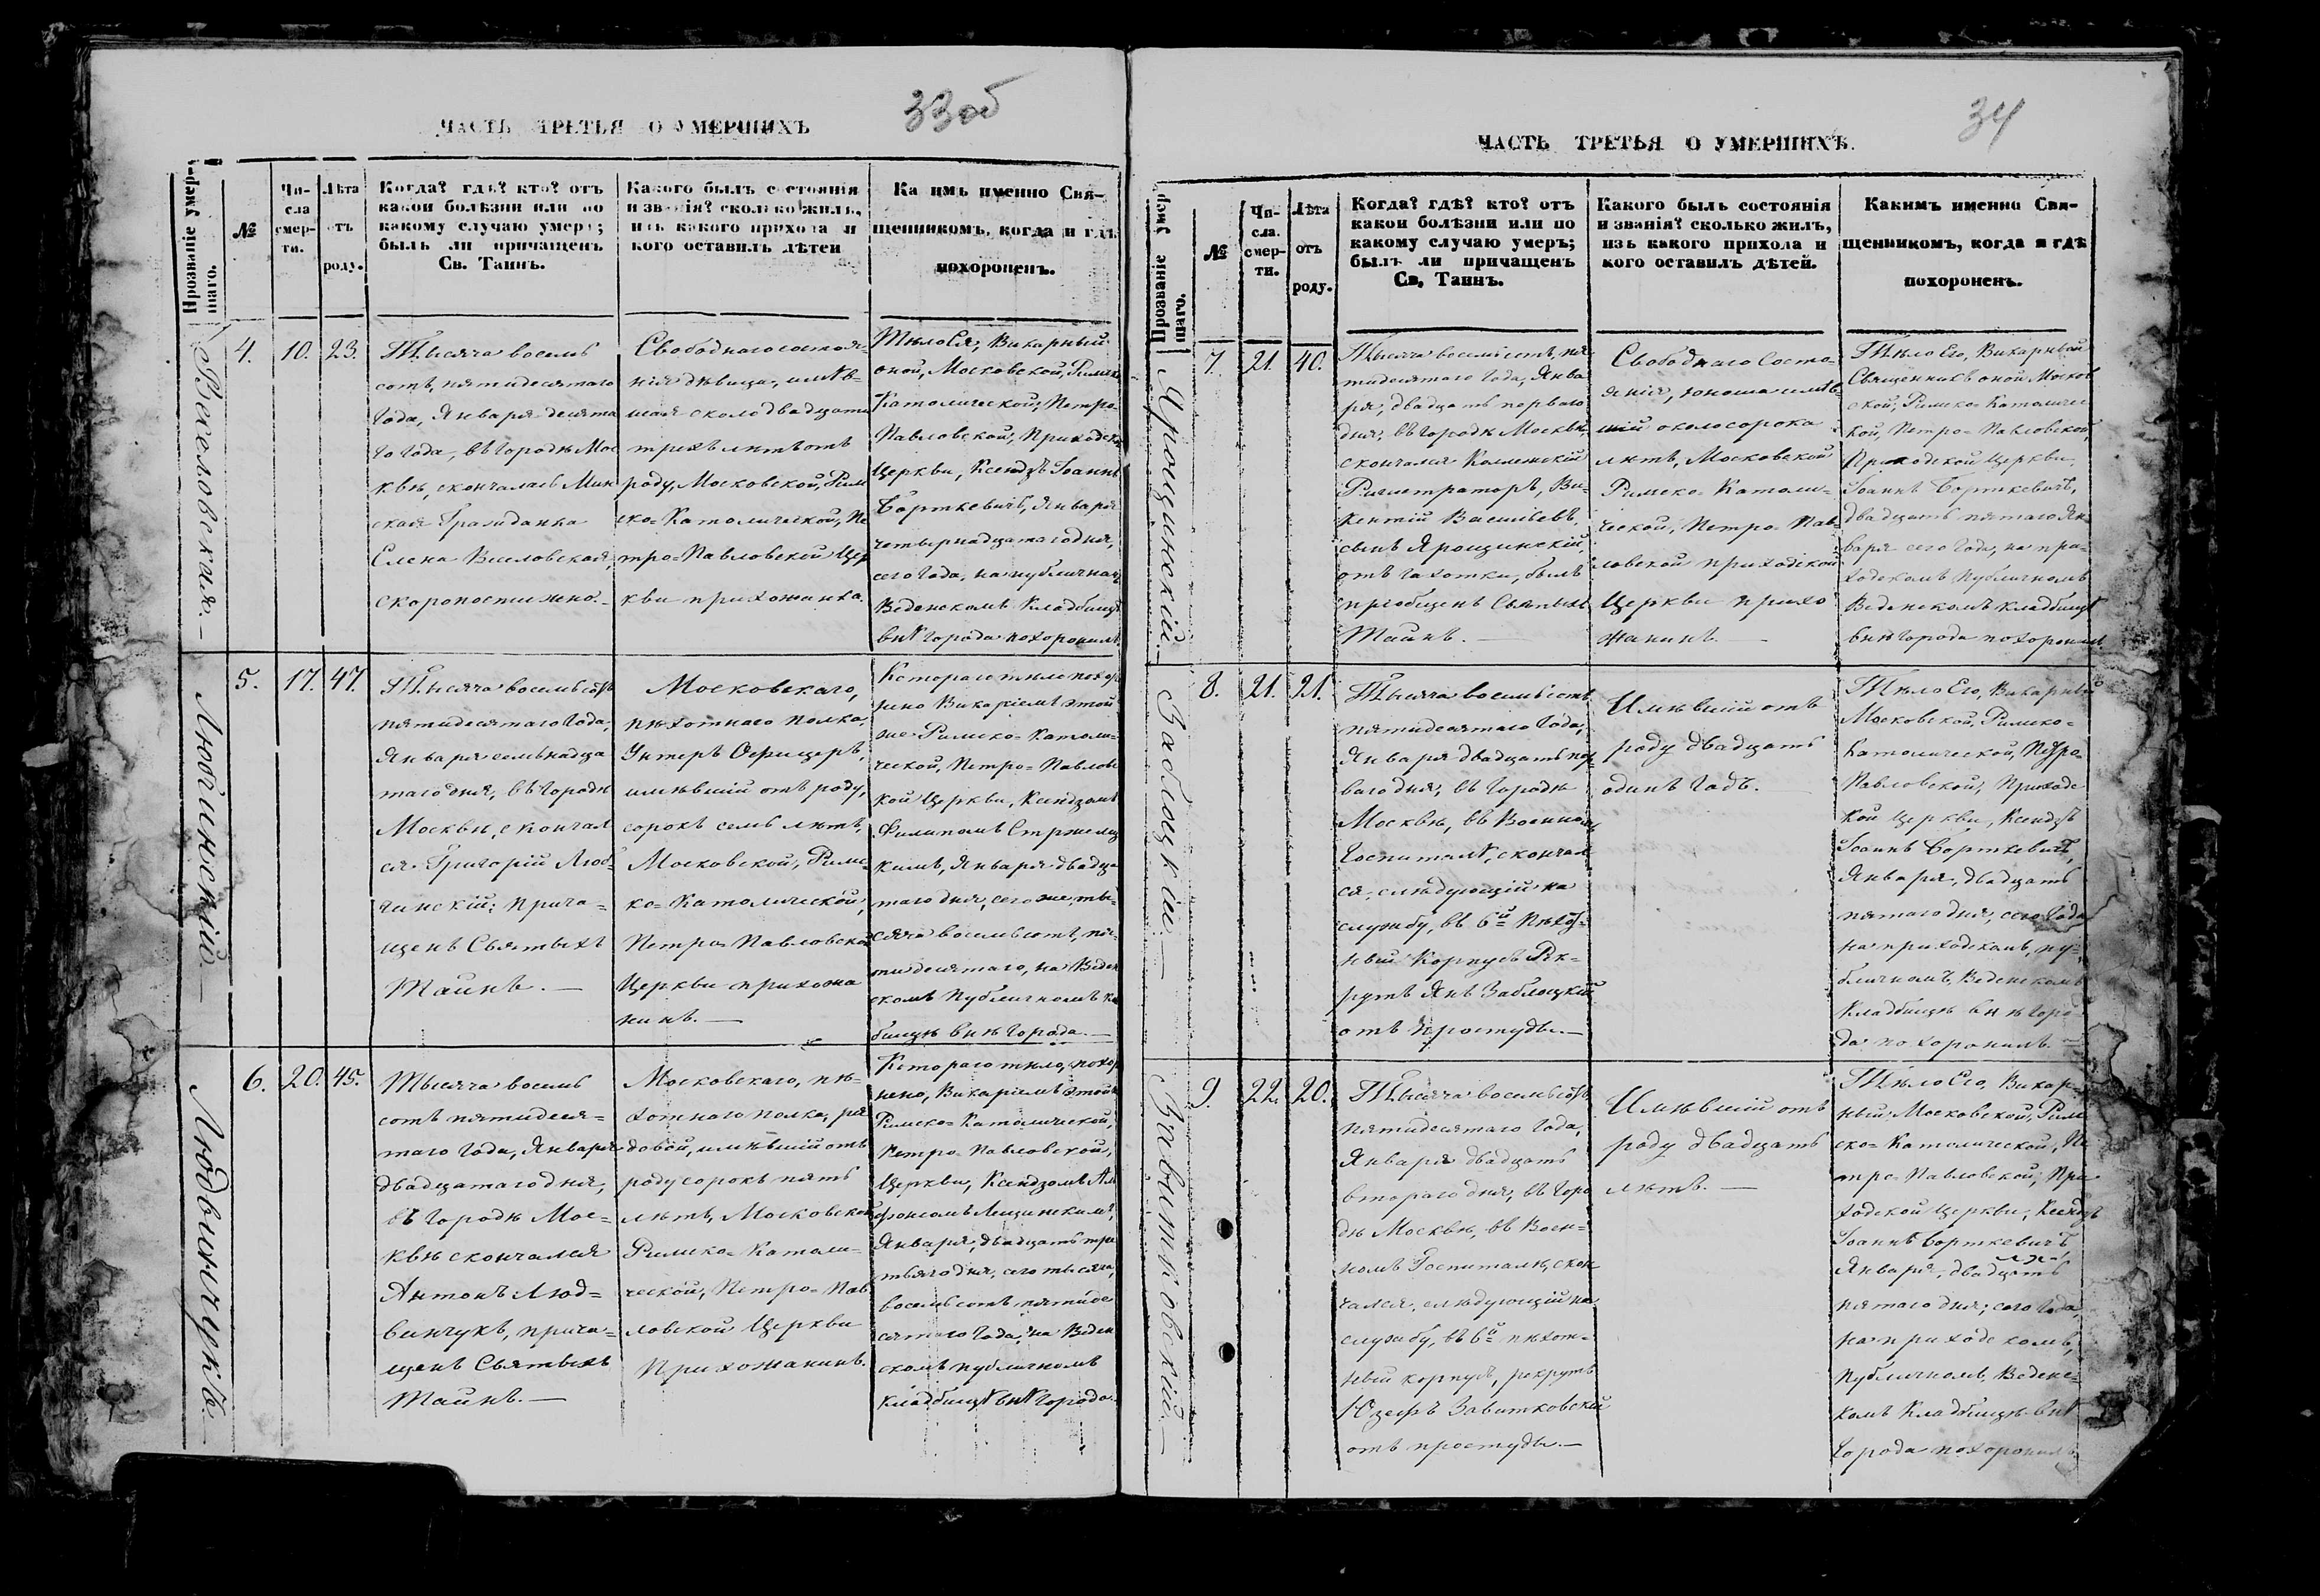 33 об
ЧАСТЬ ТРЕТЬЯ О УМЕРШИХЪ
Прозваніе умер-
шаго.
№
Чи-
сла
смер-
ти.
Лѣта
отъ
роду.
Когда? гдѣ? кто? отъ
какой болѣзни или по
какому случаю умеръ;
былъ ли причащенъ
Св. Таинъ.
Какого былъ состоянія
и званія? сколько жилъ,
изъ какого прихода и
кого оставилъ дѣтей
Какимъ именно Свя-
щенникомъ, когда и гдѣ
похороненъ.
Веселовская.
4.
10.
23.
Тысяча восемь
сотъ, пятидесятаго
Года, Января десята
го года, въ городѣ Мос
квѣ, скончалась Мин
ская Гражданка
Елена Веселовская,
скоропостижно.
Свободнаго состоя-
нія дѣвица, имѣв-
шая около двадцати
трехъ лѣтъ отъ
роду, Московской, Рим
ско-Католической, Пе
тро-Павловской Цер
кви прихожанка.
Тѣло Ея, Викарный
оной, Московской, Римско
Католической, Петро-
Павловской, Приходской
Церкви, Ксендзъ Іоаннъ
Борткевичъ, Января
четырнадцатаго дня,
сего года, на публичномъ
Веденскомъ Кладбищѣ
внѣ города похоронилъ.
Любчинскій.
5.
17.
47.
Тысяча восемьсотъ
пятидесятаго Года,
Января семьнадца
таго дня, въ городѣ
Москвѣ, скончал
ся Григорій Люб-
чинскій; прича-
щенъ Святыхъ
Таинъ.
Московскаго,
пѣхотнаго полка,
Унтеръ Офицеръ,
имѣвшій отъ роду,
сорокъ семь лѣтъ,
Московской, Римс-
ко-Католической,
Петро-Павловской
Церкви прихожа
нинъ.
Котораго тѣло похоро
нено Викаріемъ этой
же Римско-Католи-
ческой, Петро-Павловс
кой Церкви, Ксендзомъ
Филипомъ Стржелец
кимъ, Января двадца-
таго дня, сего же, ты-
сяча восемьсотъ, пя-
тидесятаго, на Веден
скомъ Публичномъ кл
бищѣ внѣ города.
Людвинчукъ.
6.
20.
45.
Тысяча восемь
сотъ пятидеся-
таго Года, Января
двадцатаго дня,
въ городѣ Мос-
квѣ скончался
Антонъ Люд-
винчукъ, прича-
щенъ Святыхъ
Таинъ.
Московскаго, пѣ-
хотнаго полка, ря
довой, имѣвшій отъ
роду сорокъ пять
лѣтъ, Московской
Римско-Католи-
ческой, Петро-Пав
ловской Церкви
Прихожанинъ.
Котораго тѣло, похоро
нено, Викаріемъ этой
Римско-Католической,
Петро-Павловской,
Церкви, Ксендзомъ Ал
фонсомъ Лещинскимъ,
Января, двадцать тре
тьяго дня, сего тысяча,
восемьсотъ пятиде
сятаго Года, на Веден
скомъ публичномъ
кладбищѣ внѣ города.
34
ЧАСТЬ ТРЕТЬЯ О УМЕРШИХЪ.
Прозваніе умер-
шаго.
№
Чи-
сла.
смер-
ти.
Лѣта
отъ
роду.
Когда? гдѣ? кто? отъ
какой болѣзни или по
какому случаю умеръ;
былъ ли причащенъ
Св. Таинъ.
Какого былъ состоянія
и званія? сколько жилъ,
изъ какого прихода и
кого оставилъ дѣтей.
Какимъ именно Свя-
щенникомъ, когда и гдѣ
похороненъ.
Ярощинскій.
7.
21.
40.
Тысяча восемьсотъ, пя
тидесятаго Года, Янва
ря, двадцать перваго
дня, въ городѣ Москвѣ,
скончался Колежскій
Регистраторъ, Ви-
кентій Васильевъ,
сынъ Ярощинскій,
отъ чахотки, былъ
пріобщенъ Святыхъ
Таинъ.
Свободнаго Состо-
янія, юноша имѣв-
шій около сорока
лѣтъ, Московской
Римско-Католи-
ческой, Петро-Пав-
ловской приходской
Церкви прихо
жанинъ.
Тѣло Его, Викарный
Священникъ оной Москов
ской, Римско-Католичес
кой, Петро-Павловской,
Приходской Церкви,
Іоаннъ Борткевичъ,
двадцать пятаго Ян-
варя сего Года, на при-
ходскомъ Публичномъ
Веденскомъ кладбищѣ
внѣ города похоронилъ.
Заблоцкій.
8.
21.
21.
Тысяча восемьсотъ
пятидесятаго Года,
Января двадцать пер-
ваго дня, въ городѣ
Москвѣ, въ Военномъ
Госпиталѣ, скончал
ся, слѣдующій на
службу, въ 6й Пѣхот-
ный Корпусъ Рек-
рутъ Янъ Заблоцкій
отъ простуды.
Имѣвшій отъ
роду двадцать
одинъ годъ.
Тѣло Его, Викарный
Московской, Римско-
Католической, Петро-
Павловской, Приходс
кой Церкви, Ксендзъ
Іоаннъ Борткевичъ,
Января, двадцать
пятаго дня, сего Года
на приходскомъ, пу-
бличномъ, Веденскомъ
Кладбищѣ внѣ горо-
да похоронилъ.
Завитковскій.
9.
22.
20.
Тысяча восемьсотъ
пятидесятаго Года,
Января двадцать
втораго дня, въ горо
дѣ Москвѣ, въ Воен-
номъ Госпиталѣ, скон
чался, слѣдующій на
службу, въ 6й пѣхот-
ный корпусъ, рекрутъ
Юзефъ Завитковскій
отъ простуды.
Имѣвшій отъ
роду двадцать
лѣтъ.
Тѣло Его, Викар-
ный Московской, Рим
ско-Католической, Пе
тро-Павловской, При
ходской Церкви, Ксендзъ
Іоаннъ Борткевичъ
Января, двадцать
пятаго дня, сего Года,
на приходскомъ,
Публичномъ, Веденс-
комъ Кладбищѣ внѣ
города похоронилъ.